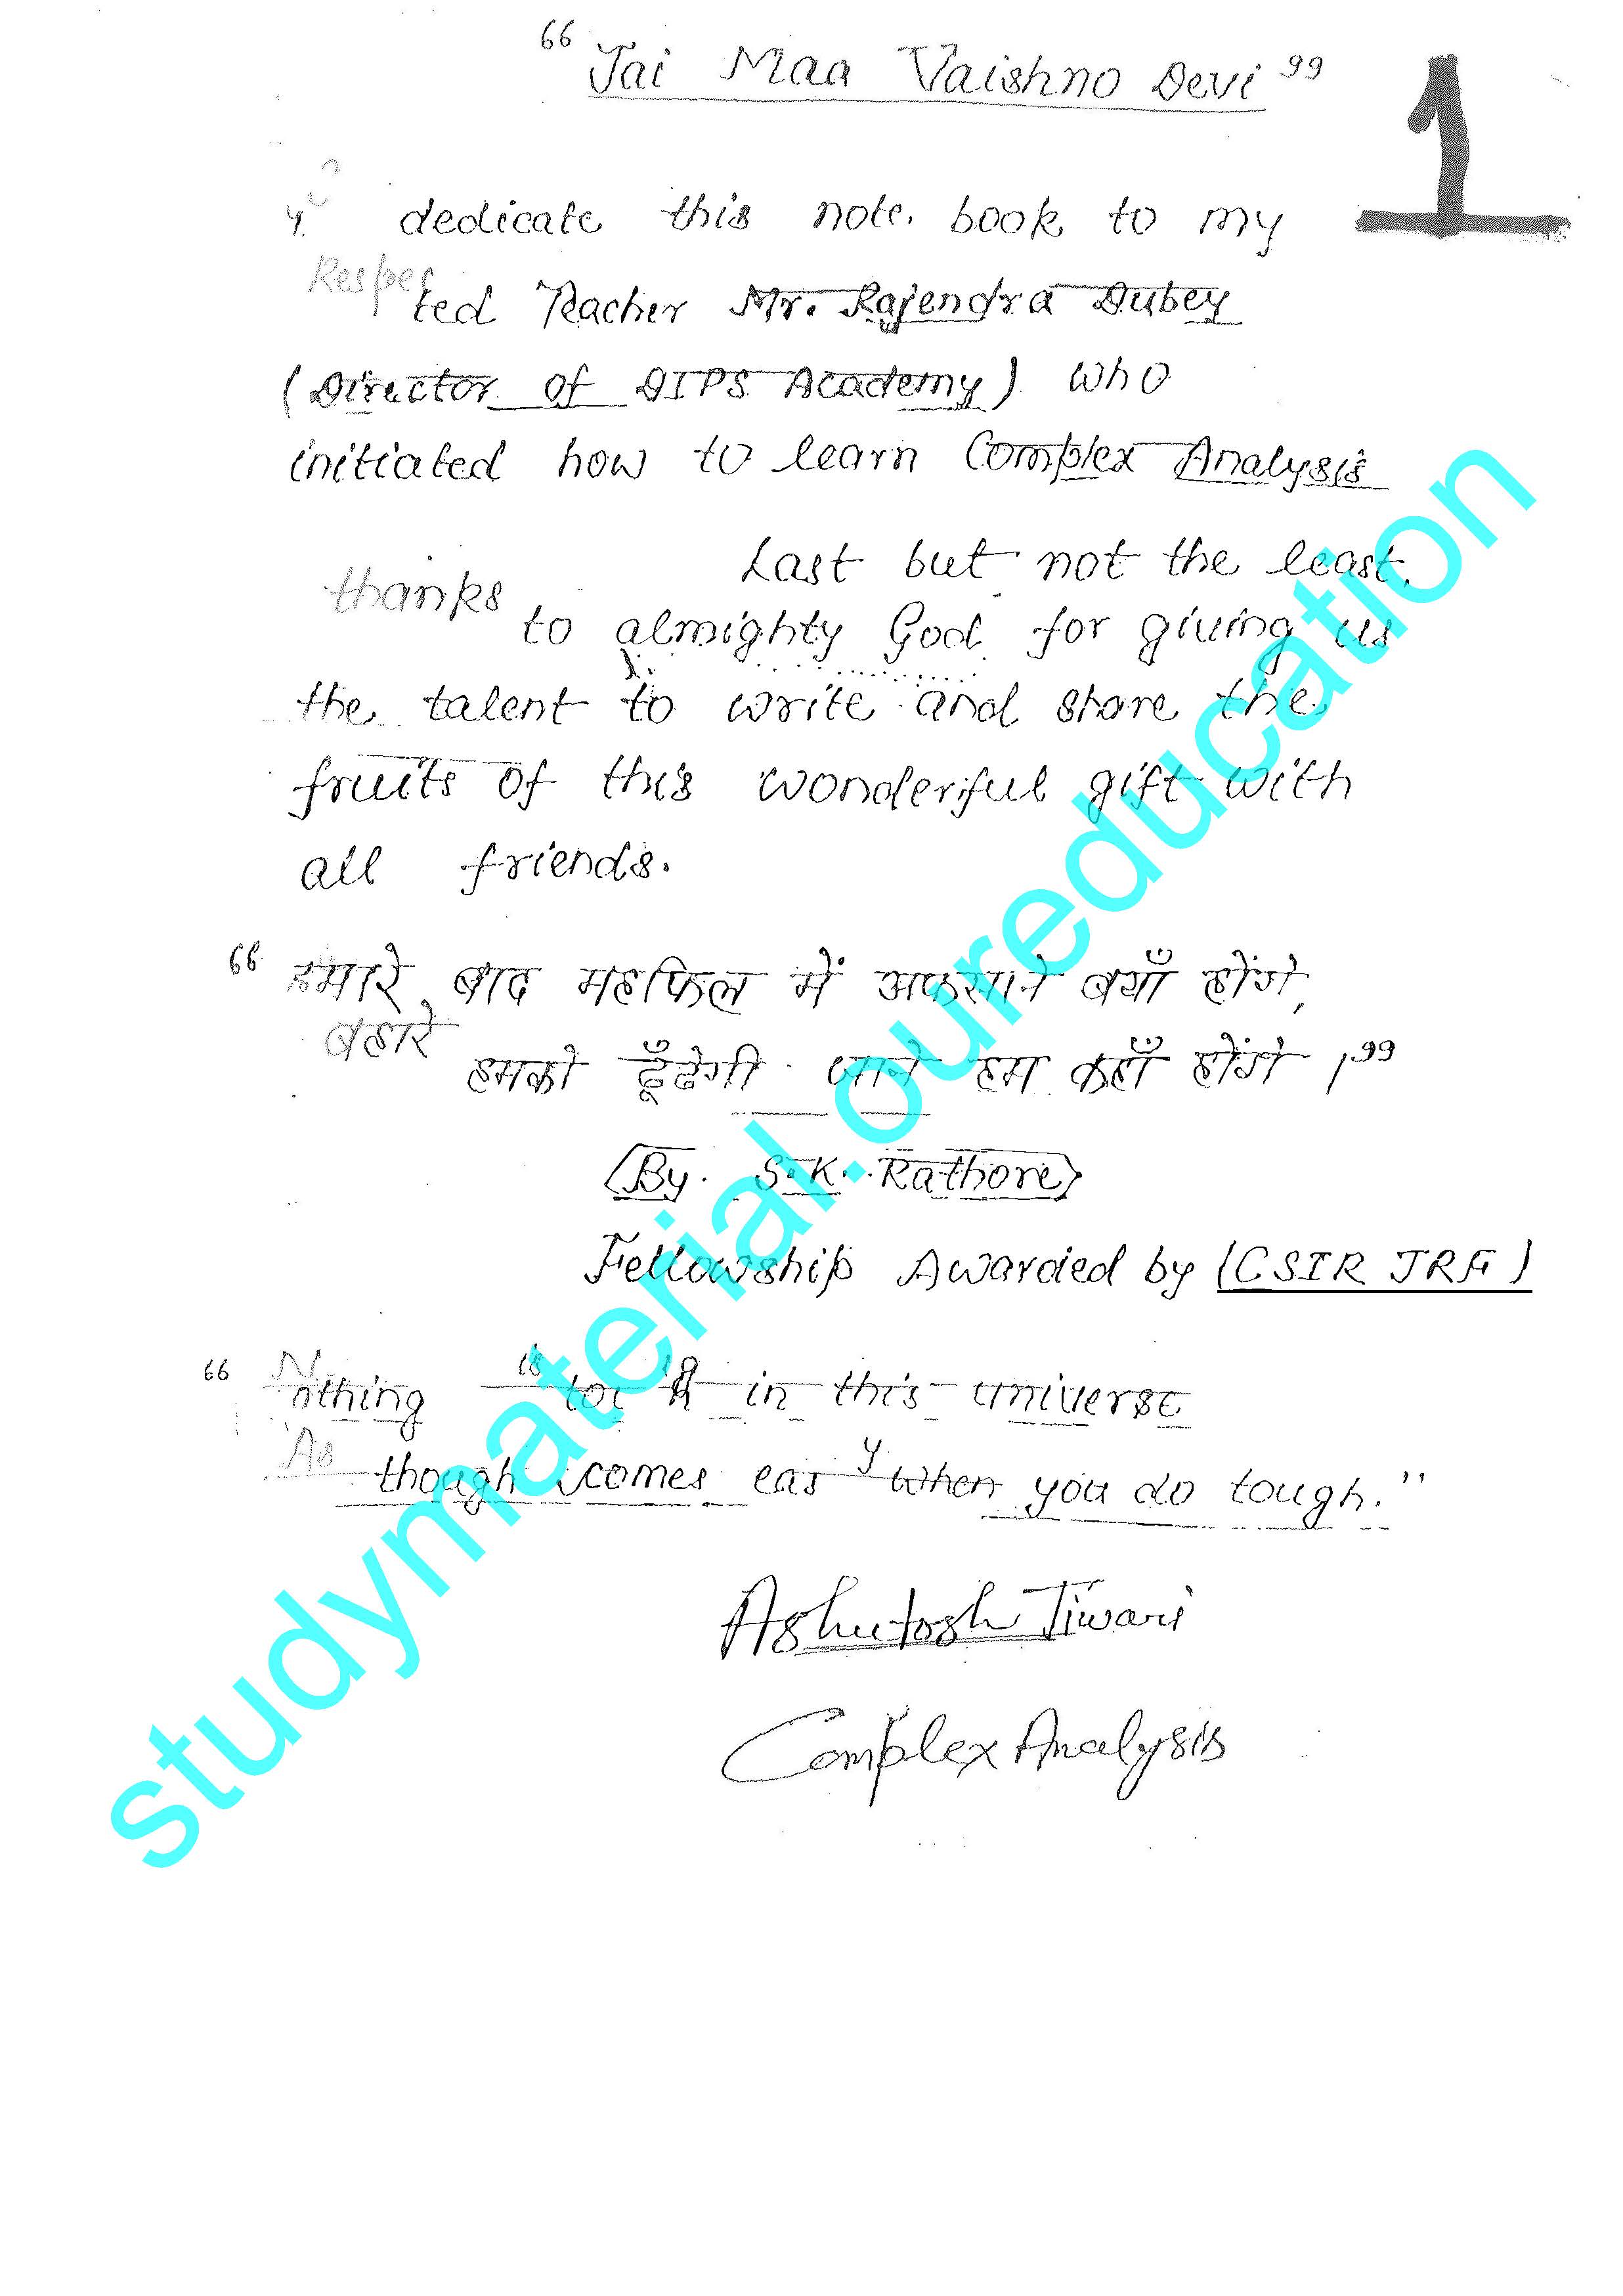 “ Jai Maa Vaishno Devi ”
1
dedicate this note book to my
Respected Teacher Mr. Rajendra Dubey
(Director of DIPS Academy) who
initiated how to learn Complex Analysis
Last but not the least,
thanks to almighty God for giving us
the talent to write and share the
fruits of this wonderful gift with
all friends.
“ हमारे बाद महफिल में अफसाने बयाँ होंगे,
बहारे हमको ढूँढेगी जाने हम कहाँ होंगे ।”
(By. S.K. Rathore)
Fellowship Awarded by (CSIR JRF)
“ Nothing is in this universe
As though comes easy when you do tough.”
Ashutosh Tiwari
Complex Analysis
studymaterial.oureducation